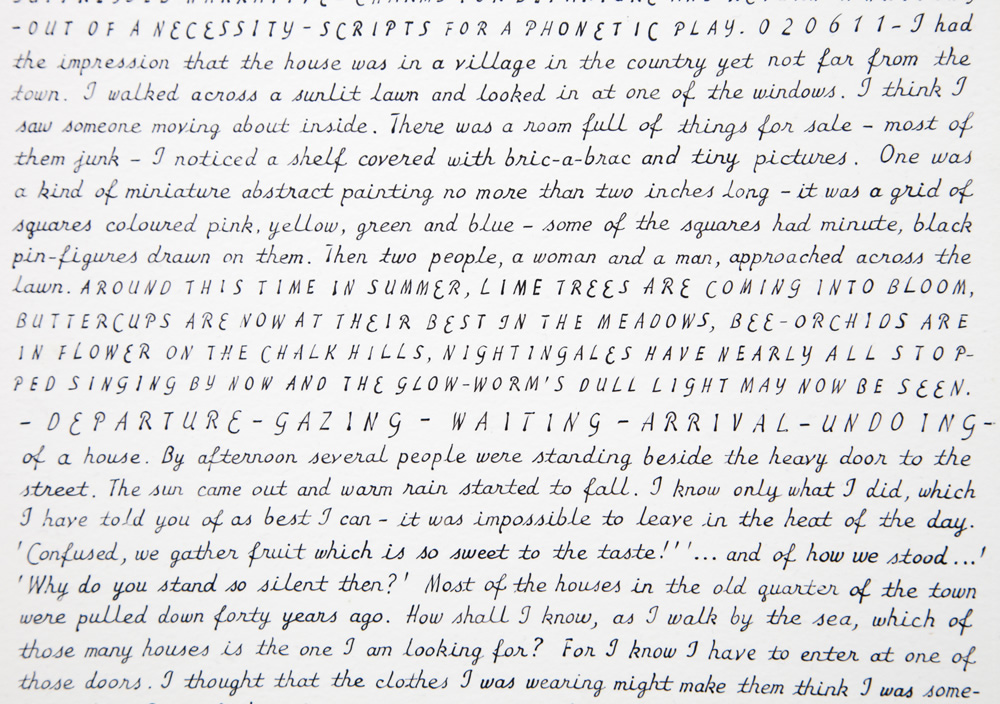 -OUT OF A NECESSITY-SCRIPTS FOR A PHONETIC PLAY. 020611-I had
the impression that the house was in a village in the country yet not far from the
town. I walked across a sunlit lawn and looked in at one of the windows. I think I
saw someone moving about inside. There was a room full of things for sale - most of
them junk - I noticed a shelf covered with bric-a-brac and tiny pictures. One was
a kind of miniature abstract painting no more than two inches long - it was a grid of
squares coloured pink, yellow, green and blue - some of the squares had minute, black
pin-figures drawn on them. Then two people, a woman and a man, approached across the
lawn. AROUND THIS TIME IN SUMMER, LIME TREES ARE COMING INTO BLOOM,
BUTTERCUPS ARE NOW AT THEIR BEST IN THE MEADOWS, BEE-ORCHIDS ARE
IN FLOWER ON THE CHALK HILLS, NIGHTINGALES HAVE NEARLY ALL STOP-
PED SINGING BY NOW AND THE GLOW-WORM'S DULL LIGHT MAY NOW BE SEEN.
- DEPARTURE-GAZING - WAITING -ARRIVAL-UNDOING-
of a house. By afternoon several people were standing beside the heavy door to the
street. The sun came out and warm rain started to fall. I know only what I did, which
I have told you of as best I can - it was impossible to leave in the heat of the day.
'Confused, we gather fruit which is so sweet to the taste!' '... and of how we stood...!'
'Why do you stand so silent then?' Most of the houses in the old quarter of the town
were pulled down forty years ago. How shall I know, as I walk by the sea, which of
those many houses is the one I am looking for? For I know I have to enter at one of
those doors. I thought that the clothes I was wearing might make them think I was some-